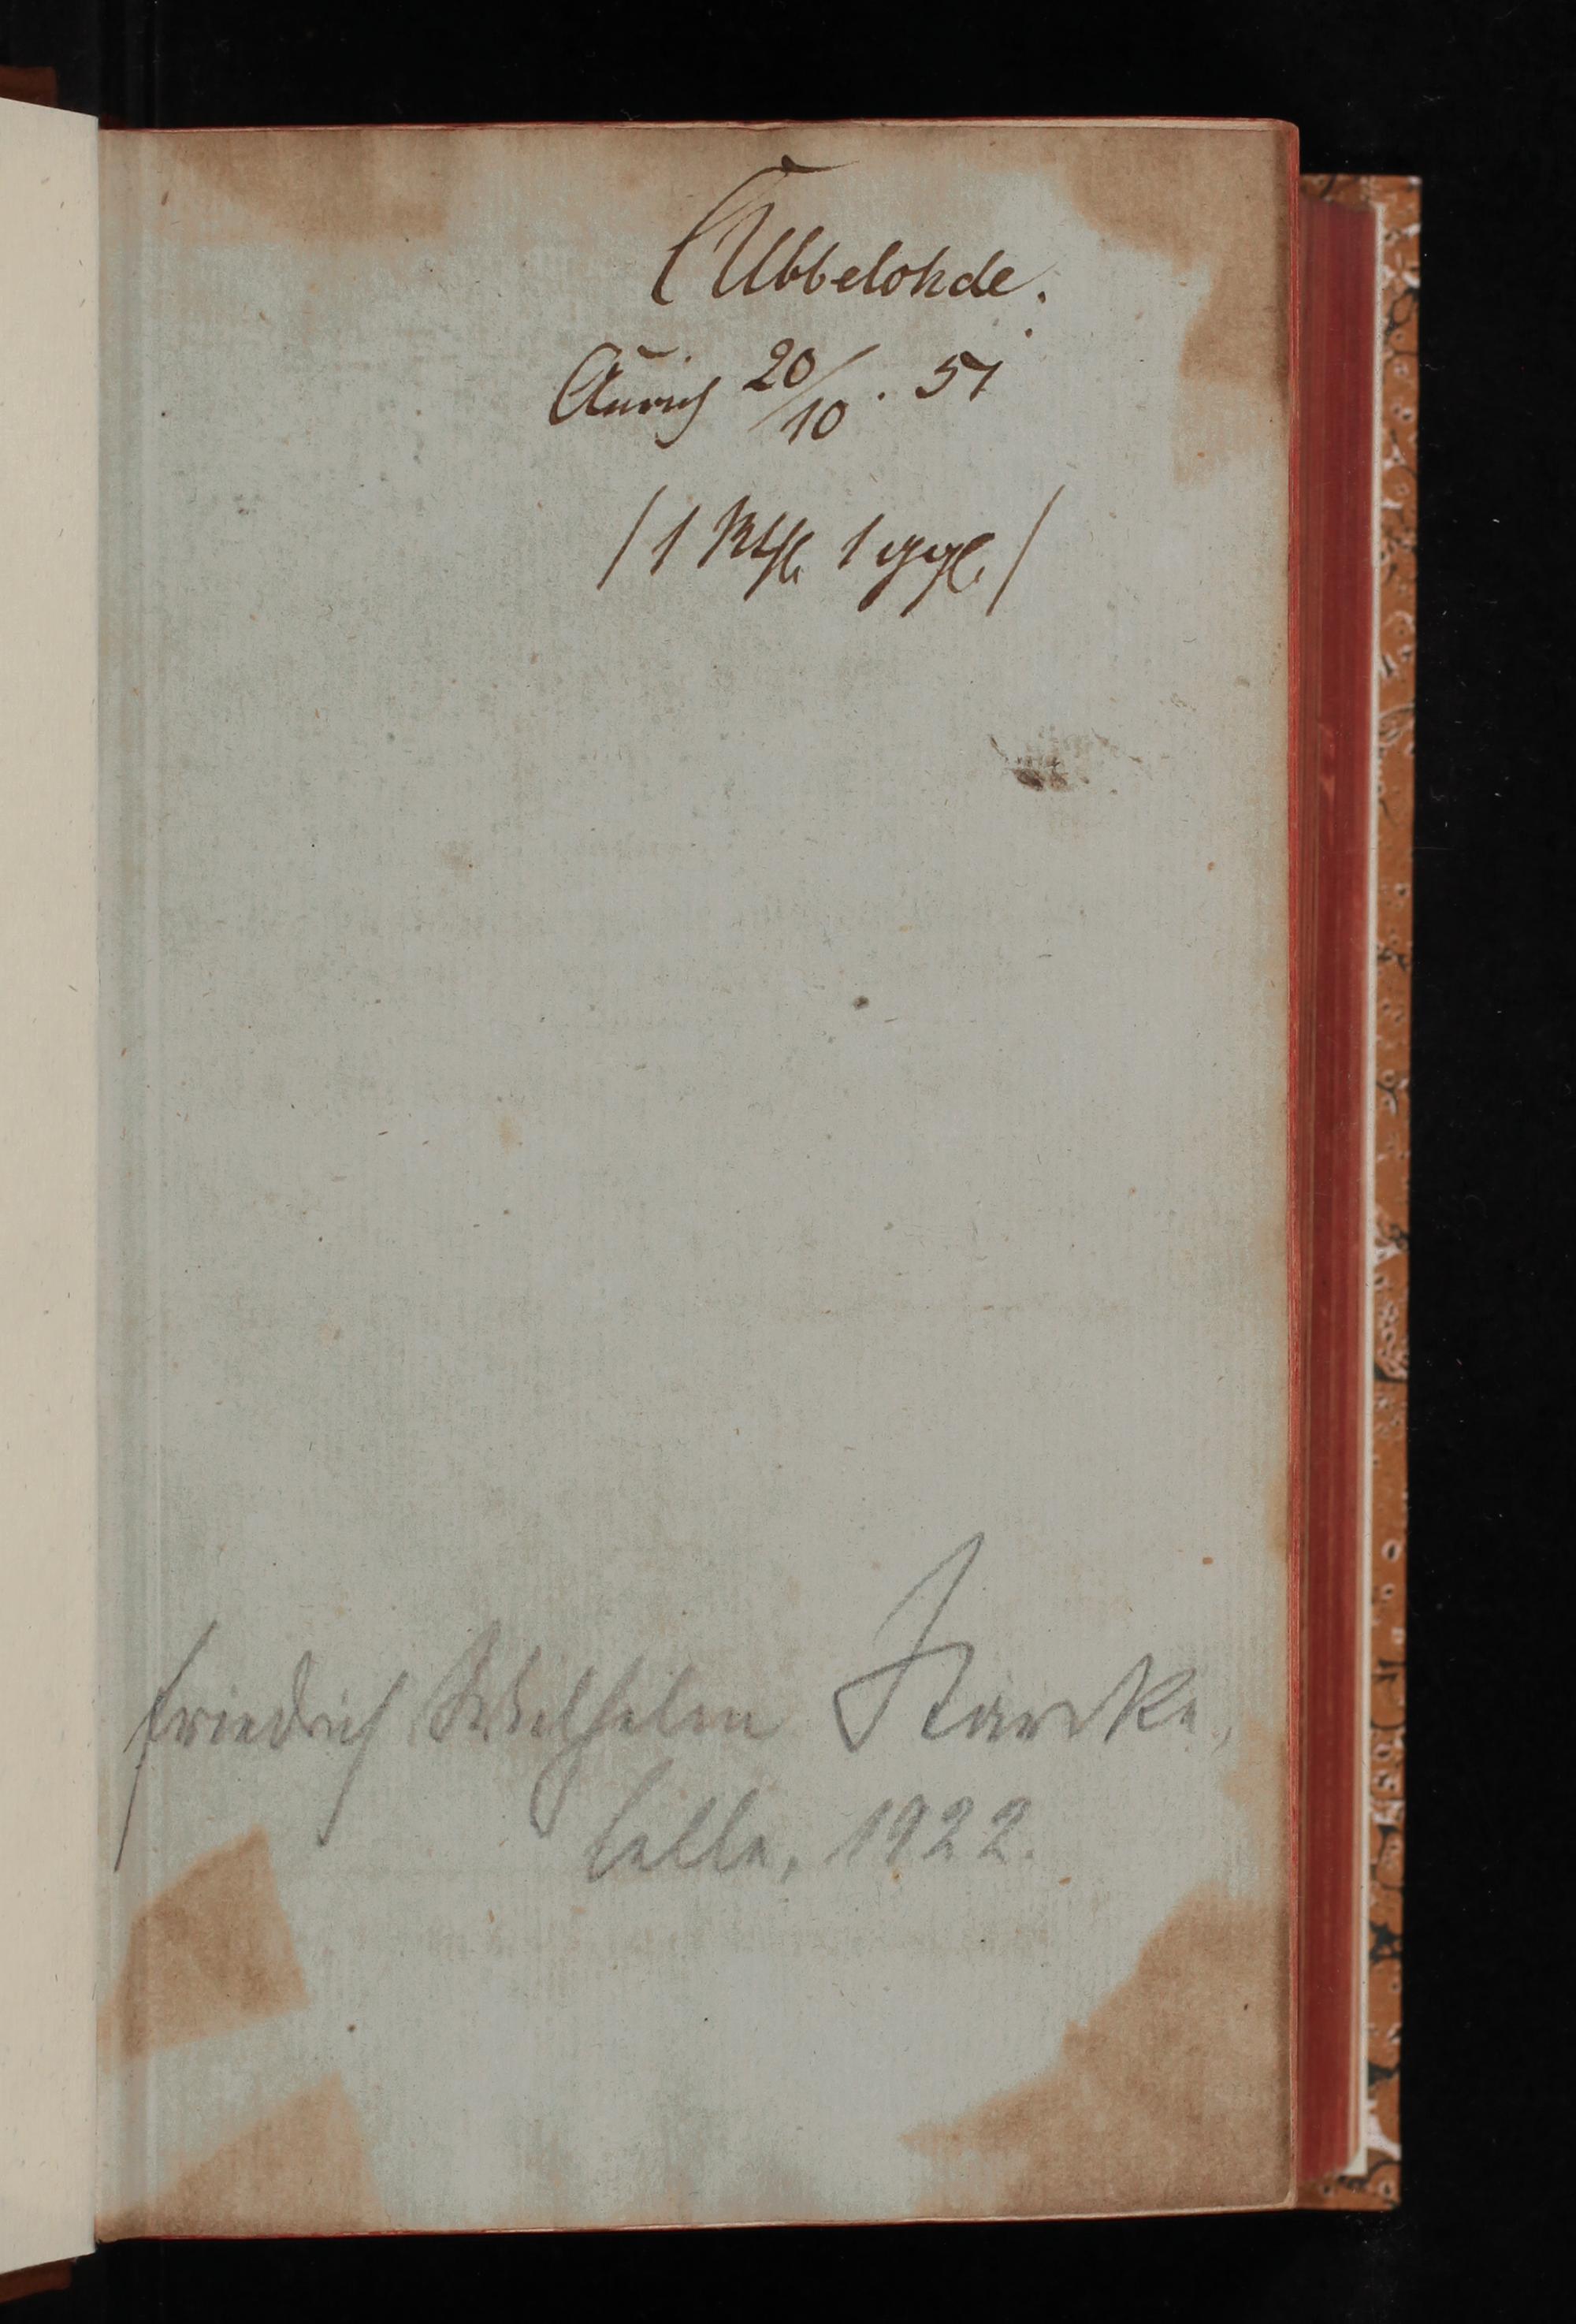 Ubbelohde.
Aurich 20/10. 51
/ 1 Rthlr 1 ggl. /
Friedrich Wilhelm Starcke,
Celle, 1922.